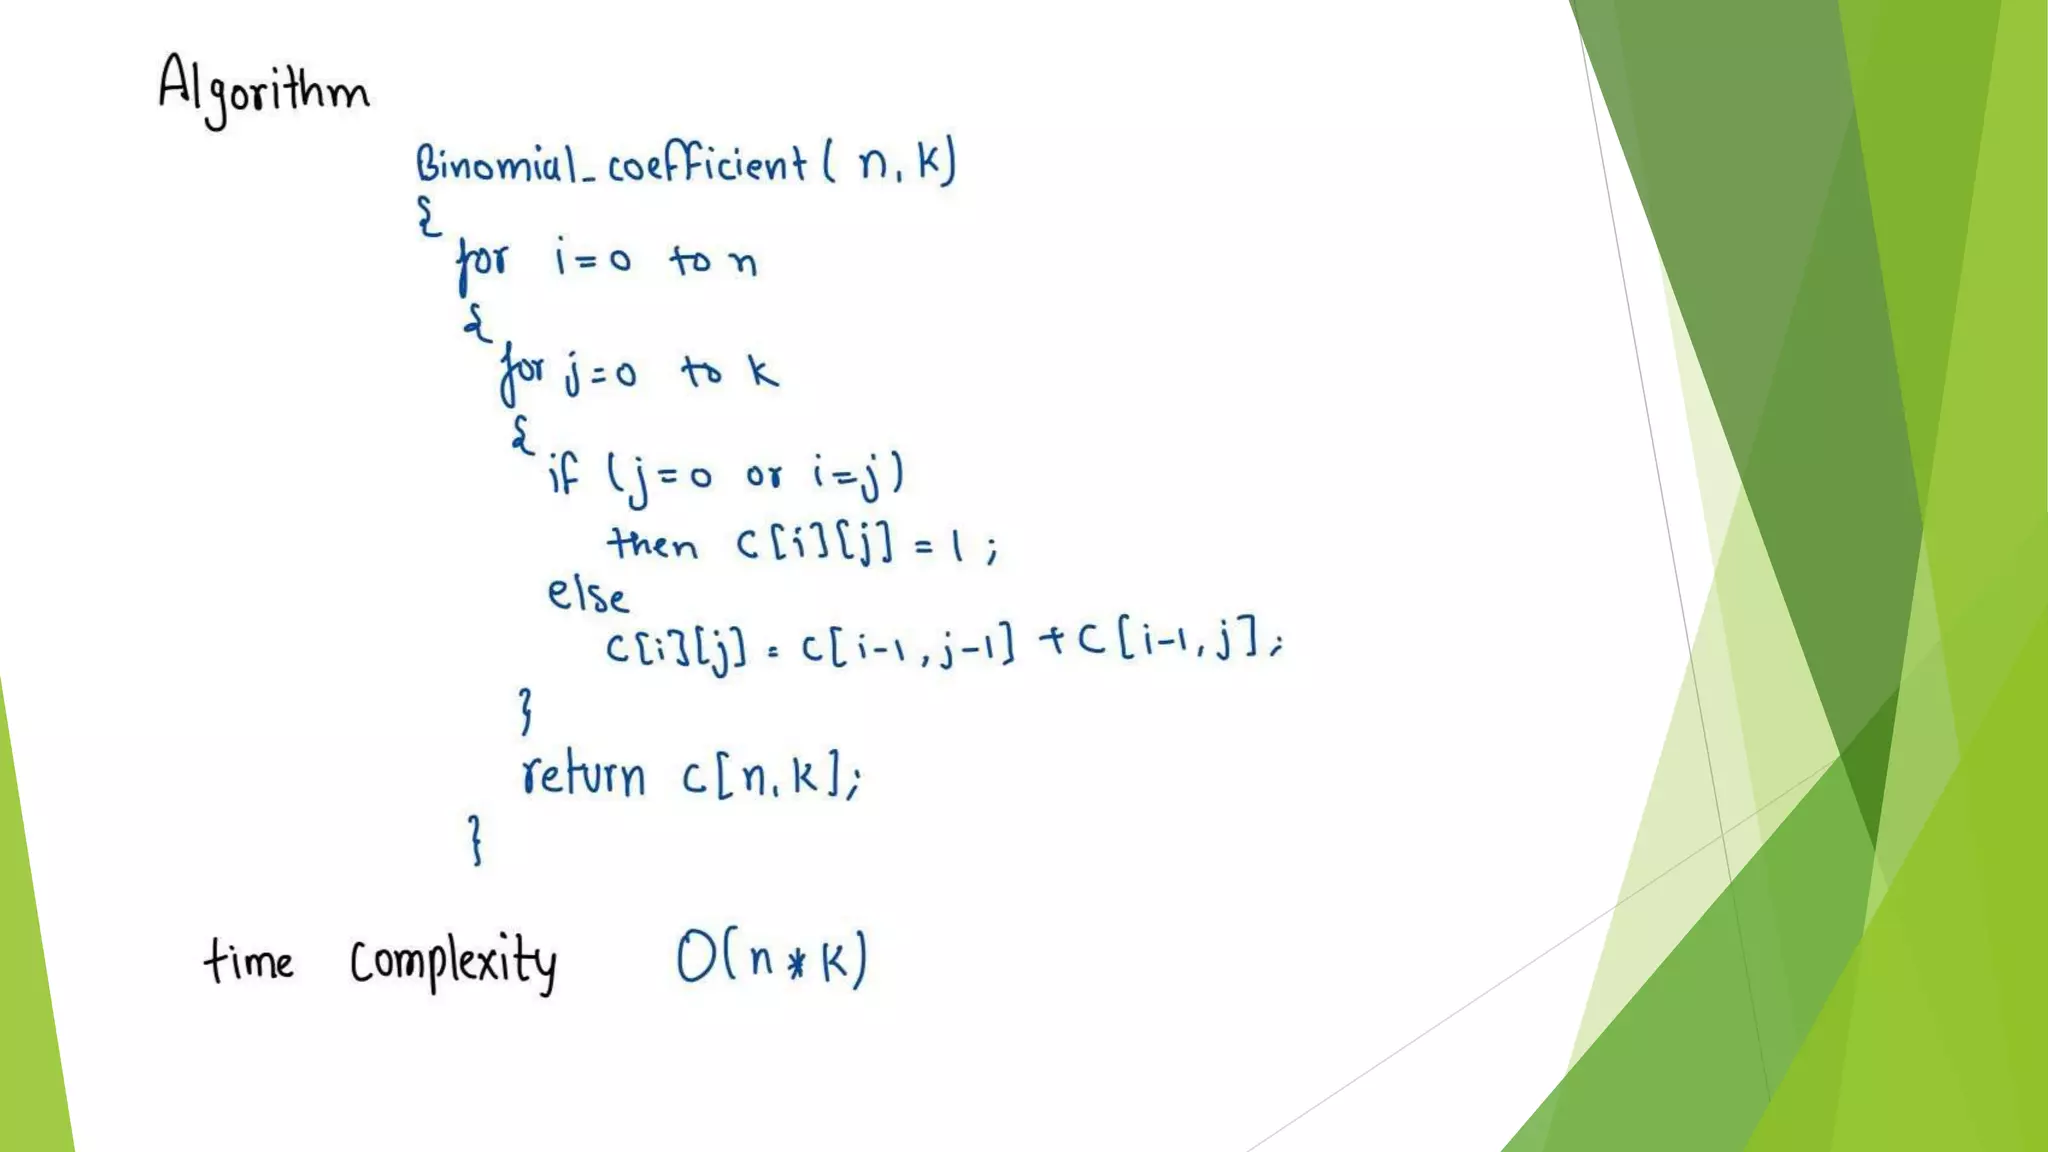 Algorithm
Binomial_coefficient ( n, k)
{
for i=0 to n
{
for j=0 to k
{
if (j=0 or i=j)
then C[i][j] = 1 ;
else
C[i][j] = C[i-1, j-1] + C[i-1, j];
}
return C[n, k];
}
time complexity O(n * k)